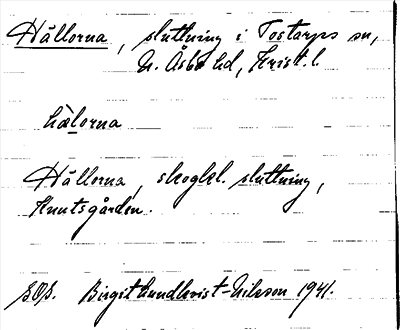 Hällorna, sluttning i Tostarps sn,
N. Åsbo hd, Krist. l.
hàlorna
Hällorna, skogkl. sluttning,
Knutsgården.
Birgit Lundkvist-Nilsson 1941.